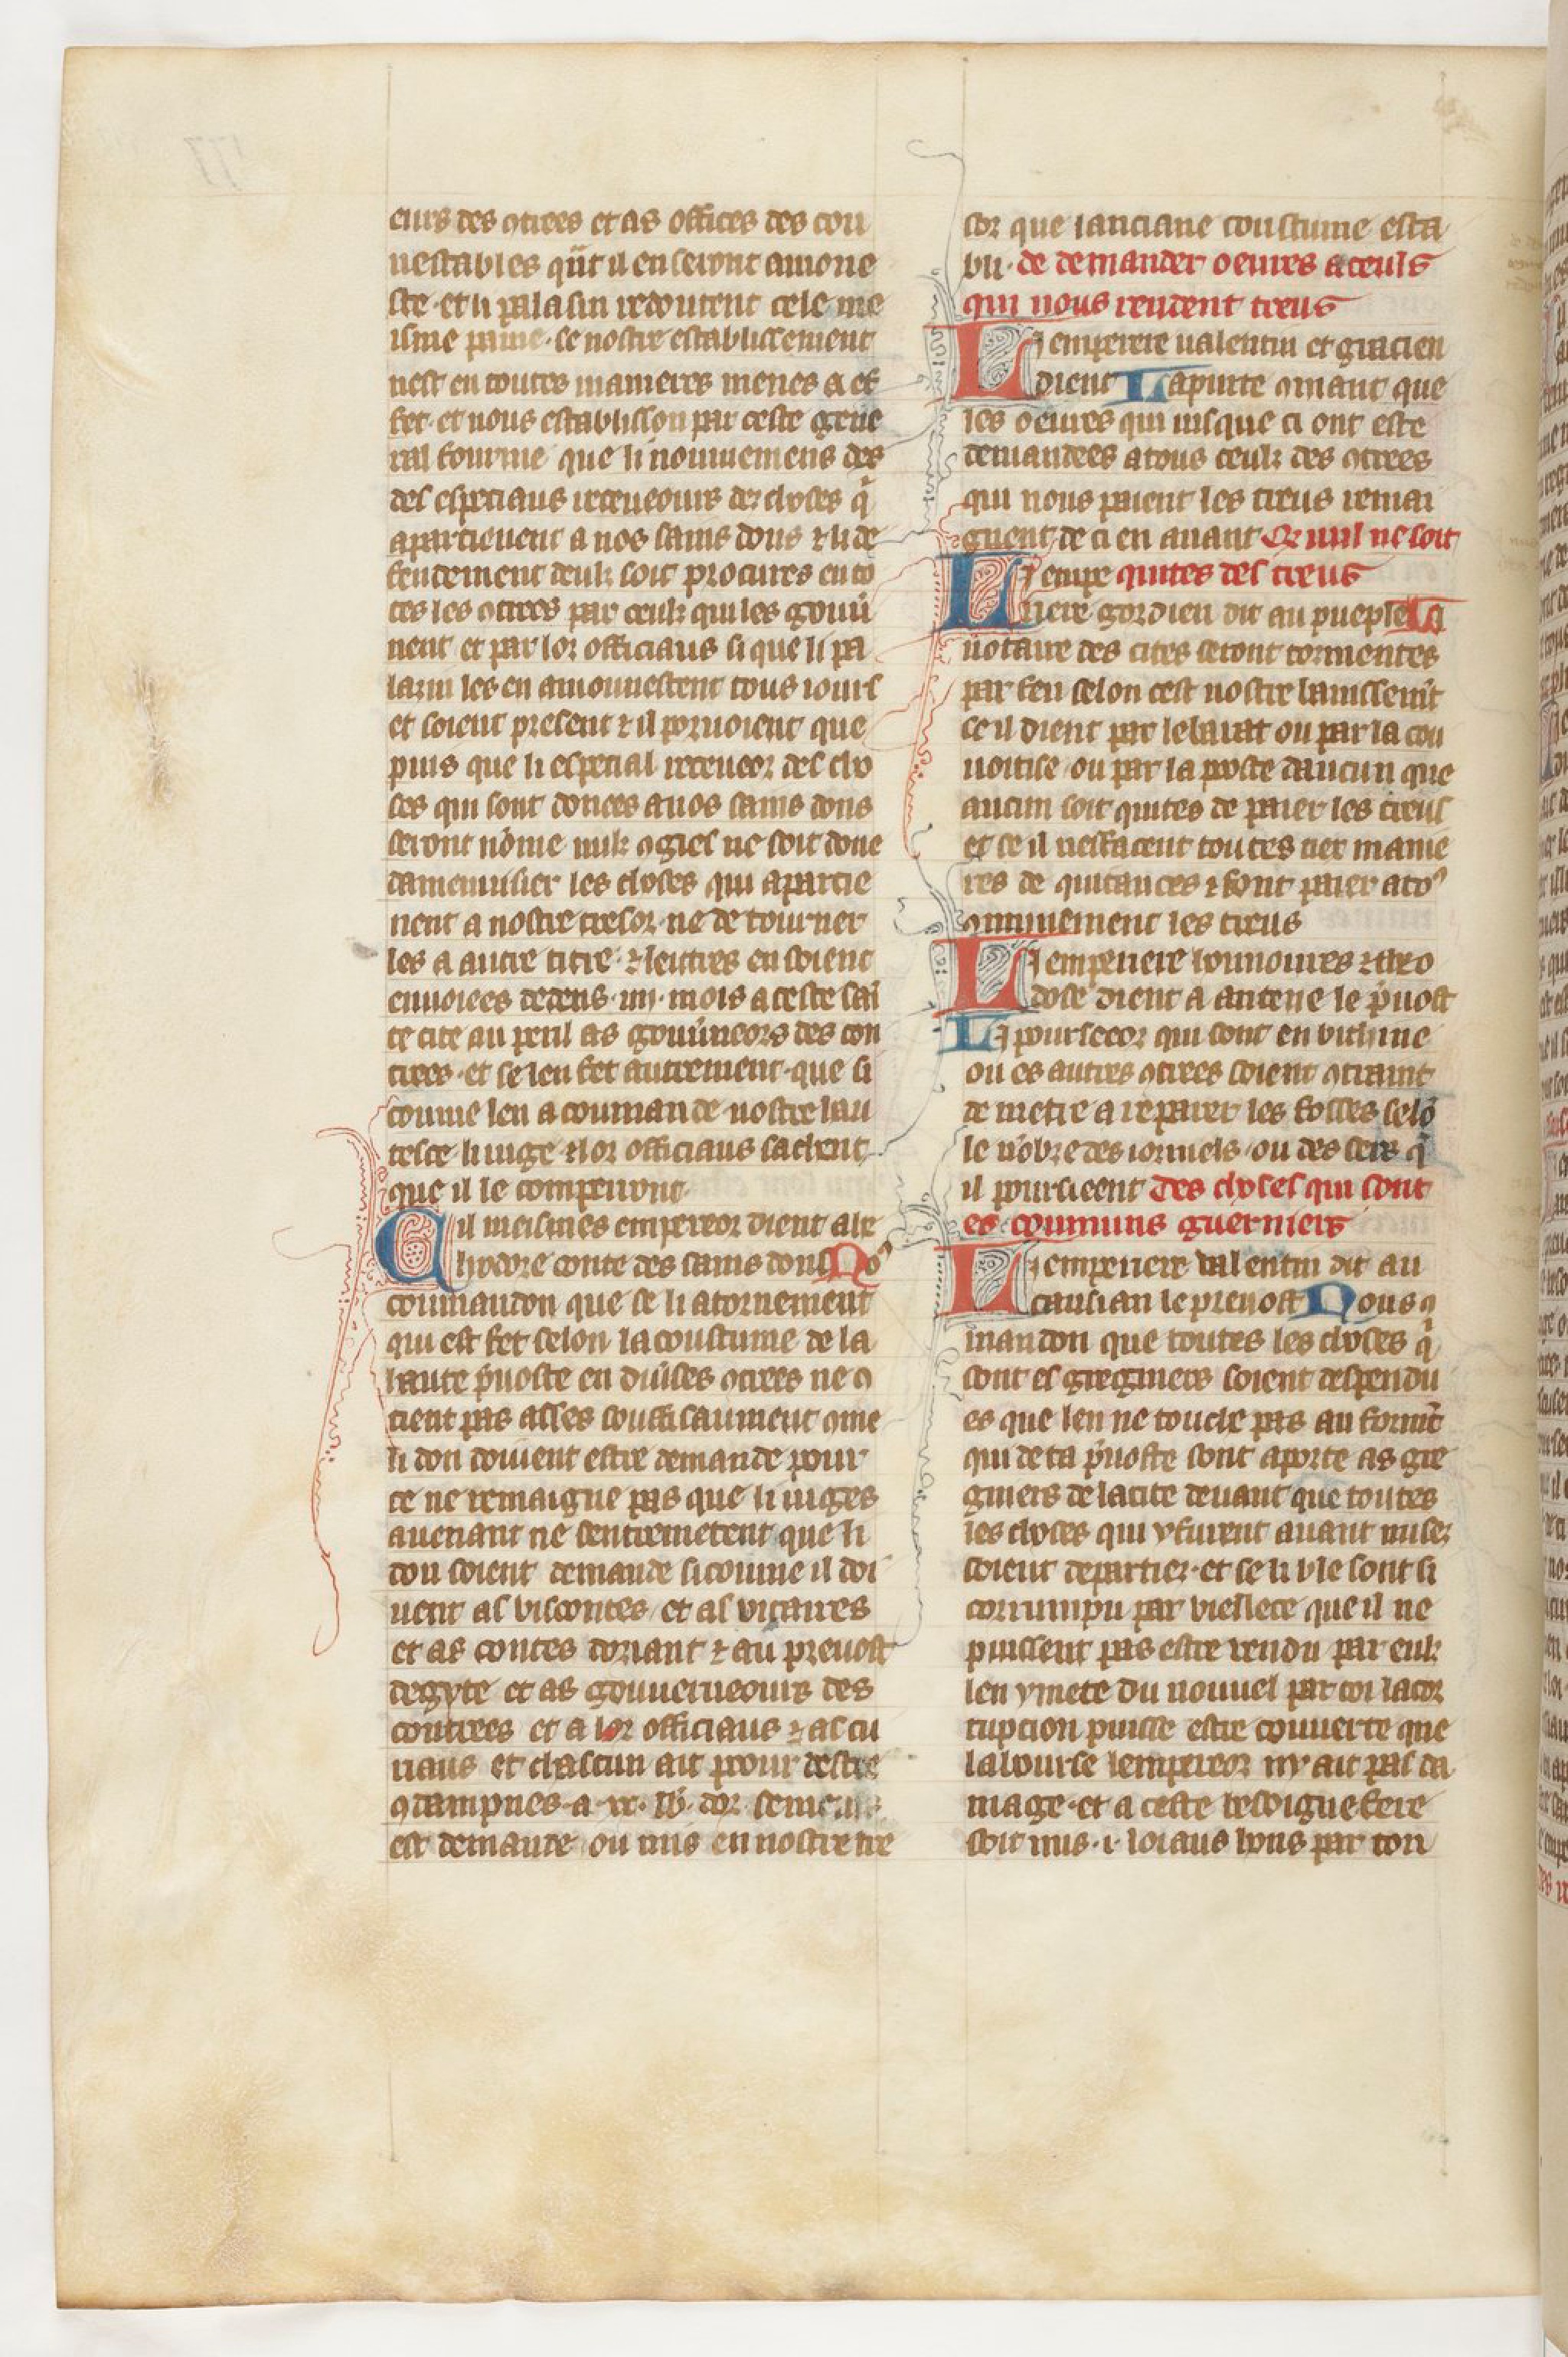 eurs des ꝯtrees et as offices des con
nestables qu̇t il en seront amone
ste· et li palasin redoutent cele me
isme paine· se nostre establissement
nest en toutes manieres menes a ef
fet· et nous establisson par ceste gene
ral fourme que li nommemens des
des especiaus receueours des choses q̃
apartienent a nos sains dons ⁊ li de
fendement deulz soit procures en to
tes les ꝯtrees par ceulz qui les gouu̾
nent et par lor officiaus si que li pa
lazin les en amonnestent tous iours
et soient present ⁊ il poruoient que
puis que li especial receueor des cho
ses qui sont donees a nos sains dons
seront nōme nulz ꝯgies ne soit done
damenuisier les choses qui apartie
nent a nostre tresor· ne de tourner
les a autre titre· ⁊ leittres en soient
enuoiees dedens· iiij· mois a ceste sai
te cite au peril as gouu̾neors des con
trees· et se len fet autrement· que si
comme len a coumande nostre hau
tesce· li iuge ⁊ lor officiaus sachent
que il le comperront·
Cil meismes empereor dient ale
lxodore conte des sains dons No᷒
coumandon que se li atornement
qui est fet selon la coustume de la
haute p̾uoste en diu̾ses ꝯtrees ne ꝯ
tient pas asses souffisaument ꝯme
li don doiuent estre demande pour
ce ne remaigne pas que li iuges
auenant ne sentremetent que li
don soient demande si comme il doi
uent as viscontes/ et as vicaires
et as contes doriant ⁊ au preuost
degypte et as gouuerneours des
contrees et a lor officiaus ⁊ as cu
riaus et chascun ait pour destre
ꝯdampnes· a· xx· lb̾· dor se mains
est demande ou mis en nostre tre
sor que lanciane coustume esta
bli· de demander oeures a ceuls
qui nous rendent treus
Li emperere ualentin et gracien
dient La purte ꝯmant que
les oeures qui iusque ci ont este
demandees a tous ceulz des ꝯtrees
qui nous paient les treus remai
gnent de ci en auant Q̄ nul ne soit
Li empe quites des treus
riere gordien dit au pueple Li
notaire des cites seront tormentes
par feu selon cest nostre banissem̄t
se il dient par le barat ou par la cou
uoitise/ ou par la poste daucun que
aucun soit quites de paier les treus
et se il neffacent toutes tiex manie
res de quitances ⁊ font paier a to᷒
ꝯmunement les treus
Li emperiere honnoures ⁊ theo
dose dient a antene le p̾uost
Li poursecor qui sont en bithine
ou es autres ꝯtrees soient ꝯtraint
de metre a reparer les fosses selō
le nōbre des iorniels/ ou des sers q̃
il poursieent Des choses qui sont
es· coumuns guerniers
Li emperiere valentin dit au
causian le preuost Nous ꝯ
mandon que toutes les choses q̃
sont es gregniers soient despendu
es que len ne touche pas au form̄t
qui de ta p̾uoste sont aporte as gre
gniers de la cite deuant que toutes
les choses qui y furent auant mises
soient departies· et se li ble sont si
corrumpu par viellece que il ne
puissent pas estre vendu par eulz
len y mete du nouuel par coi la cor
rupcion puisse estre couuerte que
la bourse lempereor ny ait pas da
mage· et a ceste besoigne fere
soit mis· i· loiaus hons par ton